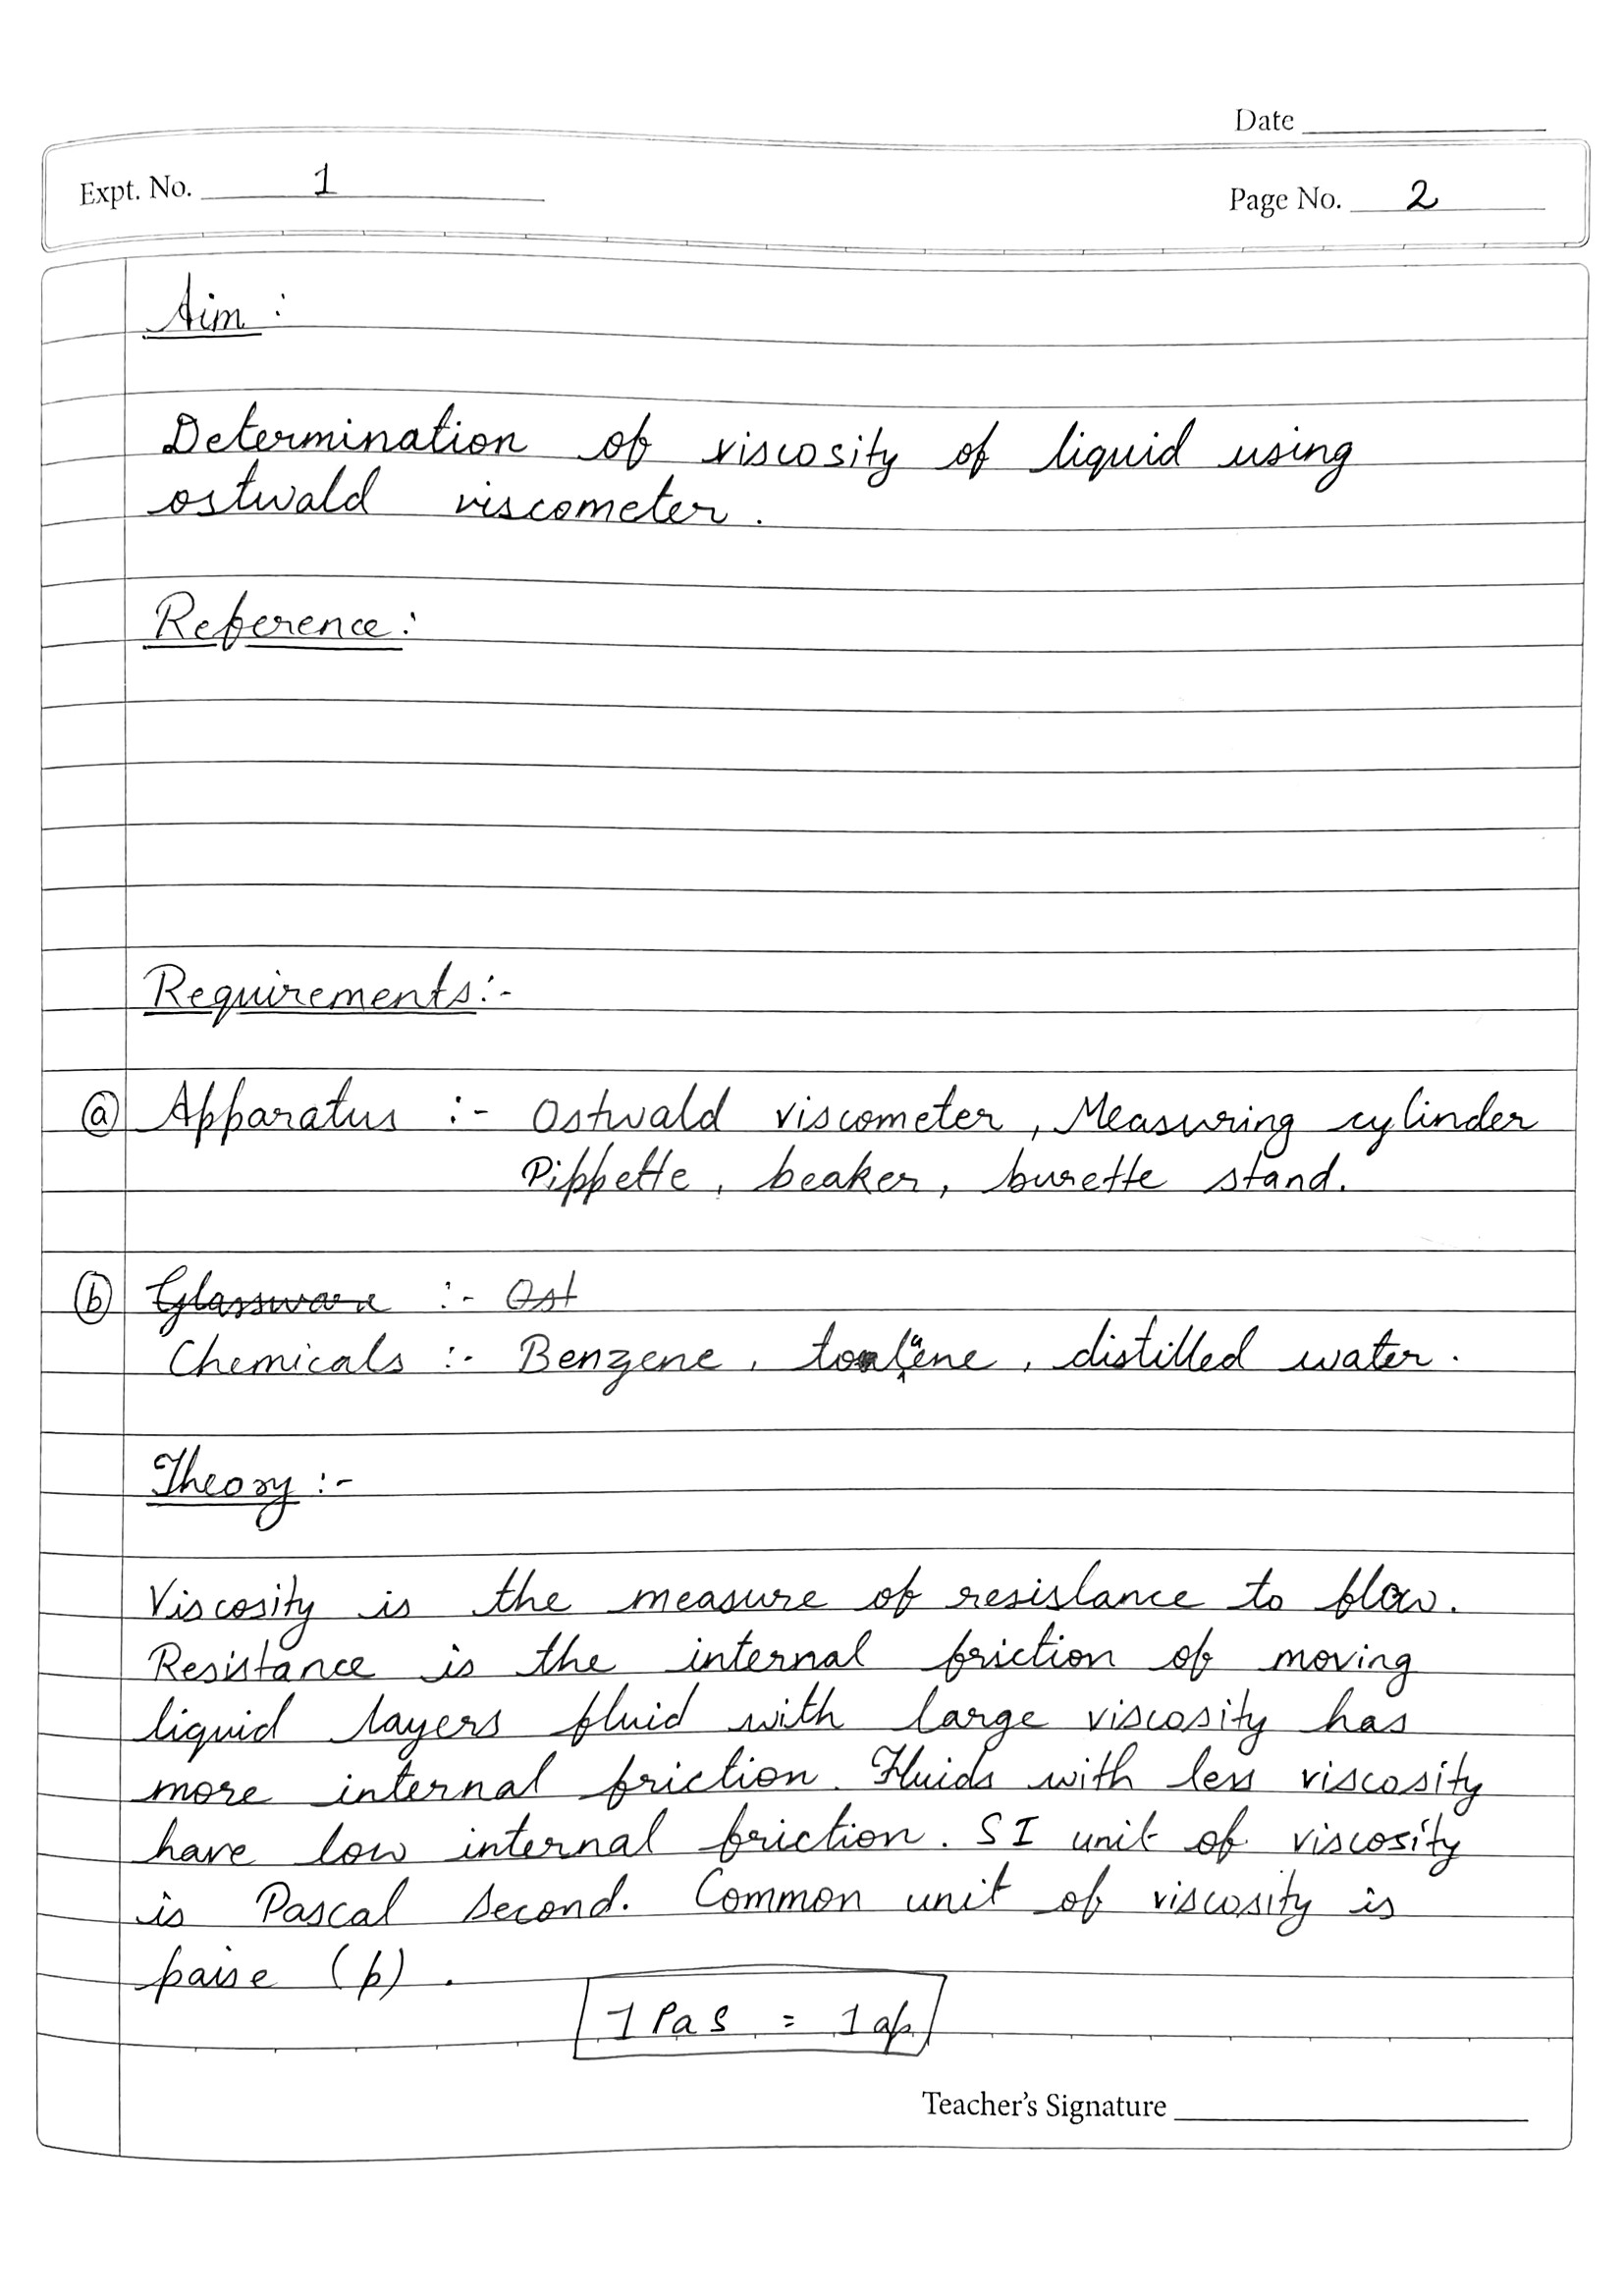 Date
Expt. No. 1
Page No. 2
Aim :
Determination of viscosity of liquid using
ostwald viscometer.
Reference:
Requirements:-
(a) Apparatus :- Ostwald viscometer, Measuring cylinder
Pippette, beaker, burette stand.
(b) Glassware :- Ost
Chemicals :- Benzene, toluene, distilled water.
Theory :-
Viscosity is the measure of resistance to flow.
Resistance is the internal friction of moving
liquid layers fluid with large viscosity has
more internal friction. Fluids with less viscosity
have low internal friction. SI unit of viscosity
is Pascal second. Common unit of viscosity is
paise (p).
1 Pa S = 1
Teacher's Signature